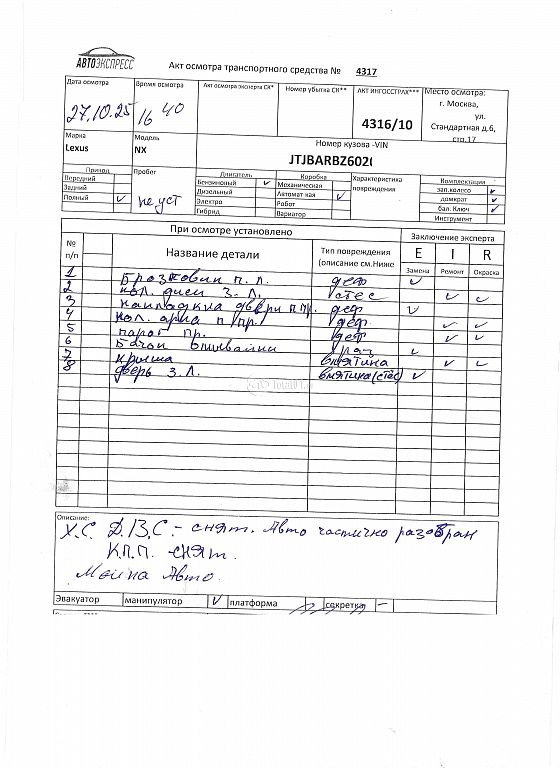 АВТОЭКСПРЕСС
Акт осмотра транспортного средства № 4317
Дата осмотра
Время осмотра
Акт осмотра эксперта СК*
Номер убытка СК**
АКТ ИНГОССТРАХ***
Место осмотра:
27.10.25
16 40
4316/10
г. Москва,
ул.
Стандартная д.6,
стр.17
Марка
Модель
Номер кузова -VIN
Lexus
NX
JTJBARBZ602(
Привод
Пробег
Двигатель
Коробка
Характеристика
повреждения
Комплектация
Передний
Бензиновый
Механическая
зап.колесо
Задний
Дизельный
Автомат кая
домкрат
Полный
Электро
Робот
бал. Ключ
Гибрид
Вариатор
Инструмент
не уст
При осмотре установлено
Заключение эксперта
№
п/п
Название детали
Тип повреждения
(описание см.Ниже
E I R
Замена
Ремонт
Окраска
1 Брызговик п. л. деф
2 кол. диск З. Л. стёс
3 накладка двери п пр. деф
4 кол. арка п пр. деф
5 порог пр. деф
6 Бачок омывайки раз
7 крыша вмятина
8 дверь З. Л. вмятина (стёс)
Total01.
Описание:
Х.С. Д.В.С. - снят. Авто частично разобран
К.П.П. снят.
Мойка Авто.
Эвакуатор
манипулятор
платформа
секретка